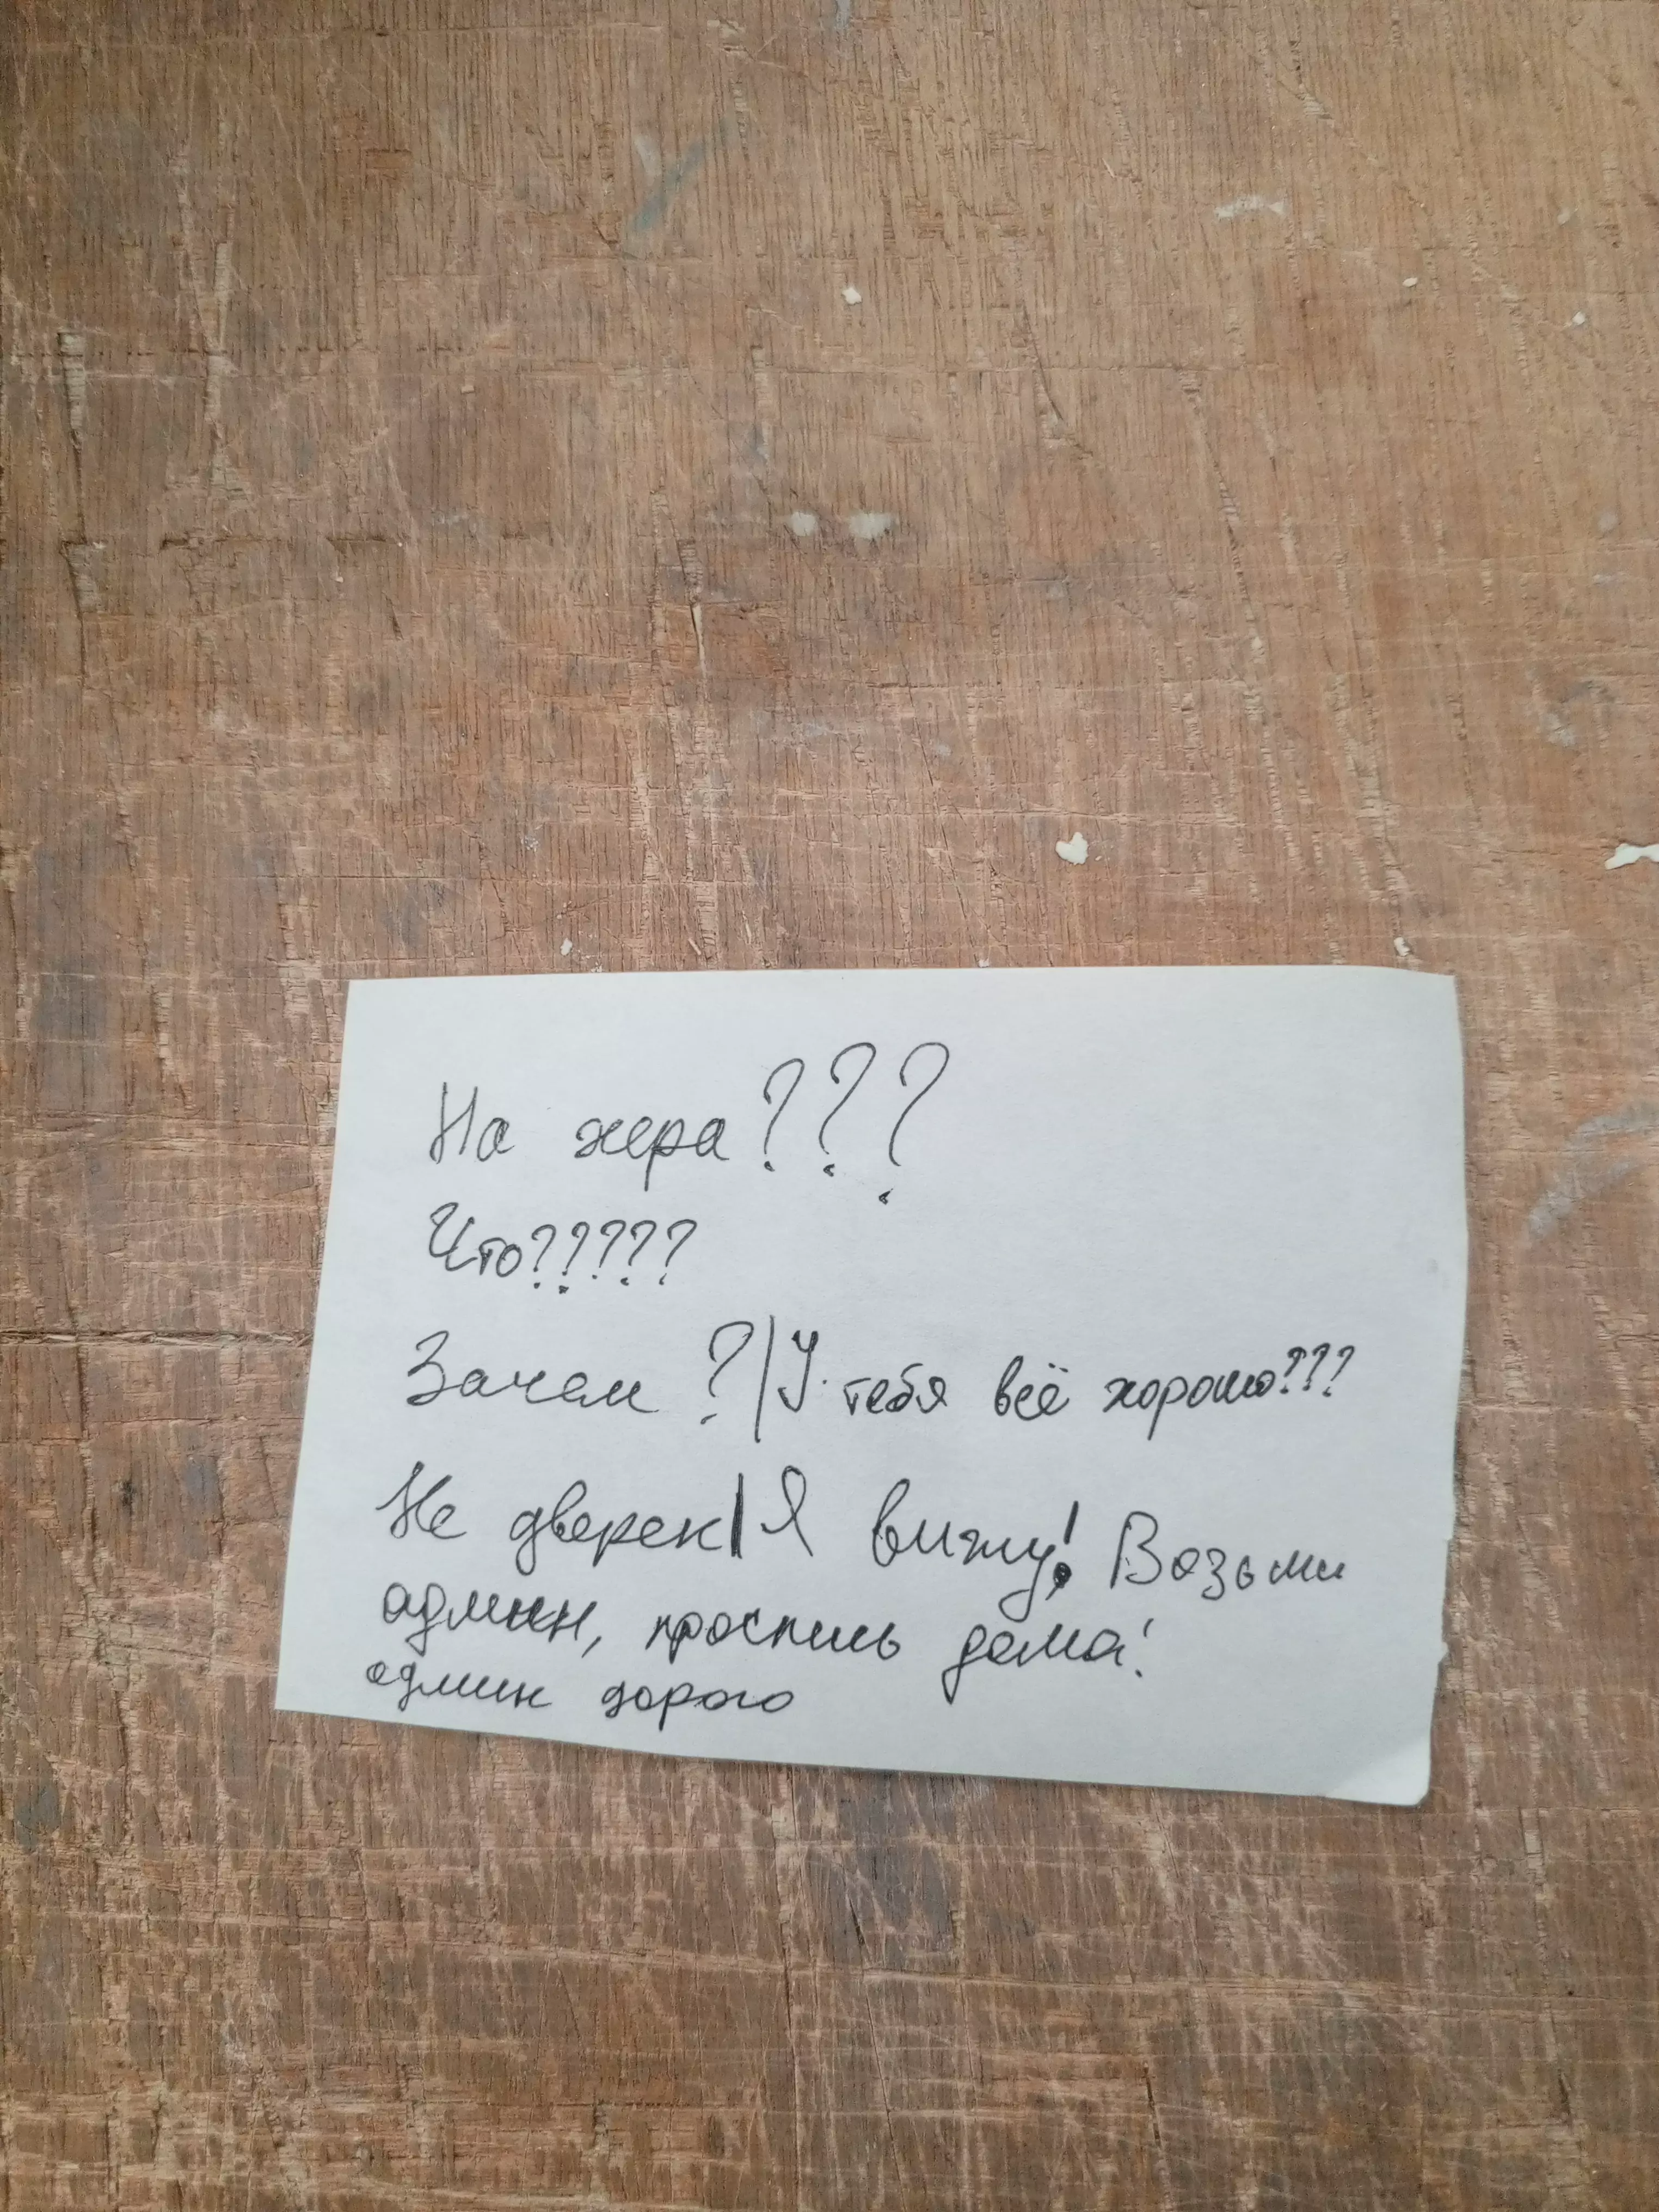 На хера???
Что?????
Зачем ?|У тебя всё хорошо???
Не дверек|Я вижу! Возьми
админ, проспись дома!
админ дорого